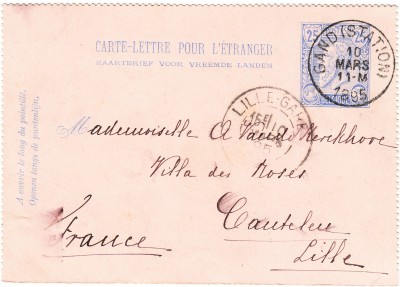 CARTE-LETTRE POUR L'ÉTRANGER
KAARTBRIEF VOOR VREEMDE LANDEN
25 25
GAND (STATION)
10
MARS
11-M
1895
LILLE-GARE
A ouvrir le long du pointillé.
Openen langs de puntenlijn.
Mademoiselle A Vande Kerckhove
Villa des Roses
Canteleu
Lille
France